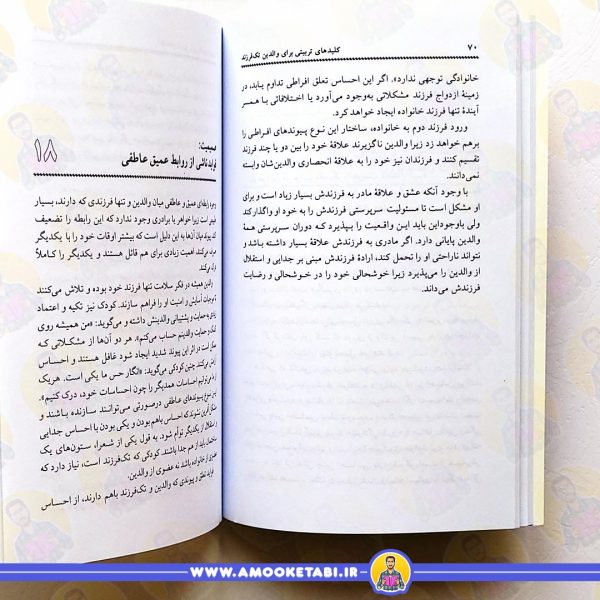 ۷۰
کلیدهای تربیتی برای والدین تک‌فرزند
خانوادگی توجهی ندارد». اگر این احساس تعلق افراطی تداوم یابد، در
زمینهٔ ازدواج فرزند مشکلاتی به‌وجود می‌آورد یا اختلافاتی با همسر
آیندهٔ تنها فرزند خانواده ایجاد خواهد کرد.
ورود فرزند دوم به خانواده، ساختار این نوع پیوندهای افراطی را
برهم خواهد زد زیرا والدین ناگزیرند علاقهٔ خود را بین دو یا چند فرزند
تقسیم کنند و فرزندان نیز خود را به علاقهٔ انحصاری والدین‌شان وابسته
نمی‌دانند.
با وجود آنکه عشق و علاقهٔ مادر به فرزندش بسیار زیاد است و برای
او مشکل است تا مسئولیت سرپرستی فرزندش را به خود او واگذار کند
ولی باوجوداین باید این واقعیت را بپذیرد که دوران سرپرستی همهٔ
والدین پایانی دارد. اگر مادری به فرزندش علاقهٔ بسیار داشته باشد و
نتواند ناراحتی او را تحمل کند، ارادهٔ فرزندش مبنی بر جدایی و استقلال
از والدین را می‌پذیرد زیرا خوشحالی خود را در خوشحالی و رضایت
فرزندش می‌داند.
۱۸
صمیمیت:
فواید ناشی از روابط عمیق عاطفی
وجود رابطه‌ای عمیق و عاطفی میان والدین و تنها فرزندی که دارند، بسیار
است زیرا خواهر یا برادری وجود ندارد که این رابطه را تضعیف
کند. پیوند میان آن‌ها به این دلیل است که بیشتر اوقات خود را با یکدیگر
می‌گذرانند، اهمیت زیادی برای هم قائل هستند و یکدیگر را کاملاً
درک می‌کنند.
والدین همیشه در فکر سلامت تنها فرزند خود بوده و تلاش می‌کنند
موجبات آسایش و امنیت او را فراهم سازند. کودک نیز تکیه و اعتماد
به حمایت و پشتیبانی والدینش داشته و می‌گوید: «من همیشه روی
کمک و حمایت والدینم حساب می‌کنم». هر دو آن‌ها از مشکلاتی که
ممکن است در اثر این پیوند شدید ایجاد شود غافل هستند و احساس
می‌کنند. چنین کودکی می‌گوید: «انگار حس ما یکی است. هریک
از ما می‌توانیم احساسات همدیگر را چون احساسات خود، درک کنیم».
این نوع پیوندهای عاطفی درصورتی می‌توانند سازنده باشند و
مشکل‌آفرین نشوند که احساس باهم بودن و یکی بودن با احساس جدایی
و استقلال از یکدیگر توأم شود. به قول یکی از شعرا، ستون‌های یک
ساختمان باید از هم جدا باشند. کودکی که تک‌فرزند است، نیاز دارد که
عضوی از خانواده باشد نه عضوی از والدین.
فواید تعلق و پیوندی که والدین و تک‌فرزند باهم دارند، از احساس
WWW.AMOOKETABI.IR